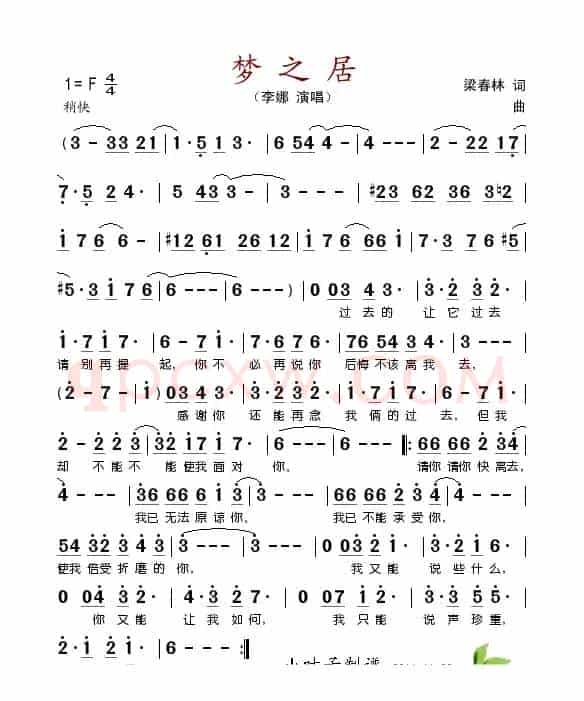 梦之居
1=F 4/4
稍快
（李娜 演唱）
梁春林 词
曲
(3 - 33 21 | 1· 5 1 3· | 6 54 4 - | 4 - - - | 2 - 22 17
7· 5 2 4· | 5 43 3 - | 3 - - - | #23 62 36 3♮2
1 7 6 6 - | #12 61 26 12 | 1 7 6 66 1 | 7· 3 76 #5
#5· 3 1 7 6 | 6 - - - | 6 - - - ) | 0 03 4 3· | 3· 2 3 2·
过去的 让它过去
1· 7 1 7· | 6 - 7 1· | 6· 1 7 1· | 76 54 3 4· | 3 - - -
请别再提起，你不必再说你后悔不该离我去，
(2 - 7 1· | 1) 03 4 3· | 3· 2 3 2· | 1· 7 1 7· | 6 - 7 1·
感谢你 还能再念 我俩的过去，但我
2 - 2 2 3 | 32 17 1 7· | 6 - - - | 6 - - - |: 66 66 2 34
却不能不能使我面对你。 请你请你快离去，
4 - - - | 36 66 6 3· | 3 - - - | 66 66 2 34 | 4 - - -
我已无法原谅你， 我已不能承受你，
54 32 3 4 3 | 3 - - - | 3 - - - | 0 03 2 2· | 3· 2 1 6·
使我倍受折磨的你。 我又能 说些什么，
0 04 3 2· | 4· 2 4 3· | 0 03 2 2· | 3· 2 1 6·
你又能 让我如何， 我只能 说声珍重，
2· 1 1 7· | 6 - - - | 6 - - - :|